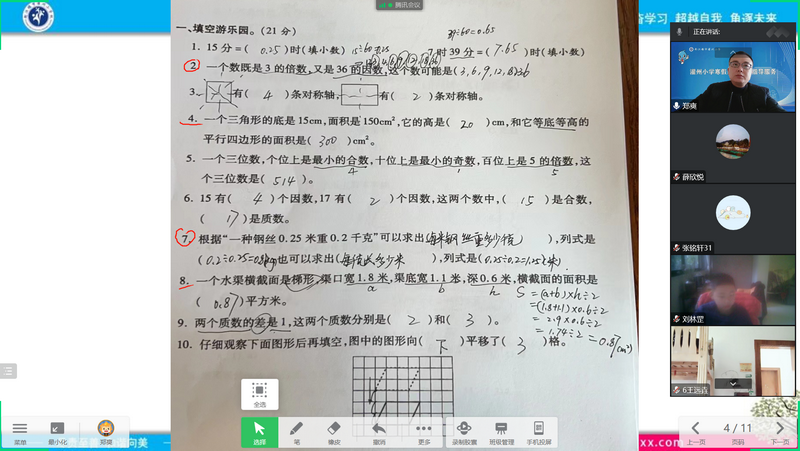 腾讯会议
奋学习 超越自我 角逐未来
正在讲话:
郑爽
薛欣悦
张铭轩31
刘林罡
一、填空游乐园。(21分)
37÷60=0.65
1. 15分=( 0.25 )时(填小数) 15÷60=0.25 7时39分=( 7.65 )时(填小数)
2. 一个数既是3的倍数,又是36的因数,这个数可能是(3,6,9,12,18,36
3. 有( 4 )条对称轴, 有( 2 )条对称轴。
4. 一个三角形的底是15cm,面积是150cm²,它的高是( 20 )cm,和它等底等高的
平行四边形的面积是( 300 )cm²。
5. 一个三位数,个位上是最小的合数,十位上是最小的奇数,百位上是5的倍数,这
4 1 5
个三位数是( 514 )。
6. 15有( 4 )个因数,17有( 2 )个因数,这两个数中,( 15 )是合数,
( 17 )是质数。
7. 根据“一种钢丝0.25米重0.2千克”可以求出( ),列式是
(0.2÷0.25=0.8kg)也可以求出( ),列式是(0.25÷0.2=1.25米)。
8. 一个水渠横截面是梯形,渠口宽1.8米,渠底宽1.1米,深0.6米,横截面的面积是
a b h
( 0.87 )平方米。
S=(a+b)×h÷2
=(1.8+1.1)×0.6÷2
=2.9×0.6÷2
=1.74÷2
=0.87(cm²)
9. 两个质数的差是1,这两个质数分别是( 2 )和( 3 )。
10. 仔细观察下面图形后再填空,图中的图形向( 下 )平移了( 3 )格。
全选
菜单
最小化
郑爽
选择
笔
橡皮
撤消
更多
录制胶囊
班级管理
手机投屏
上一页
4 / 11
页码
下一页
xx.com